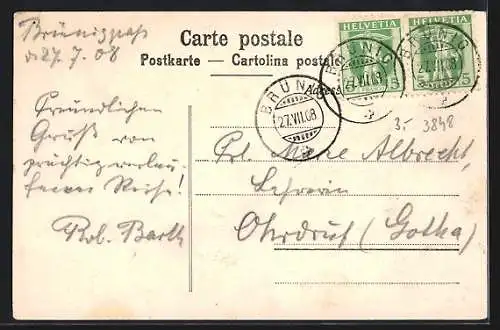 Brünigpass
d. 27.7.08
Carte postale
Postkarte — Cartolina postale
HELVETIA
HELVETIA
5
5
BRÜNIG
27.VII.08
BRÜNIG
VII.08
BRÜNIG
27.VII.08
3.- 3848
Freundlichen
Gruß von
prächtig verlau-
fener Reise!
Rob. Barth
Frl. Albrecht,
Lehrerin
Ohrdruf (Gotha)